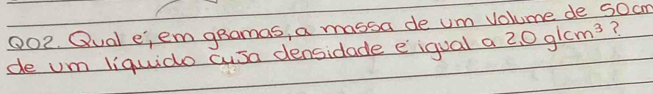 Q02. Qual é, em gramas, a massa de um volume de 50cm
de um líquido cuja densidade é igual a 2,0 g/cm³?